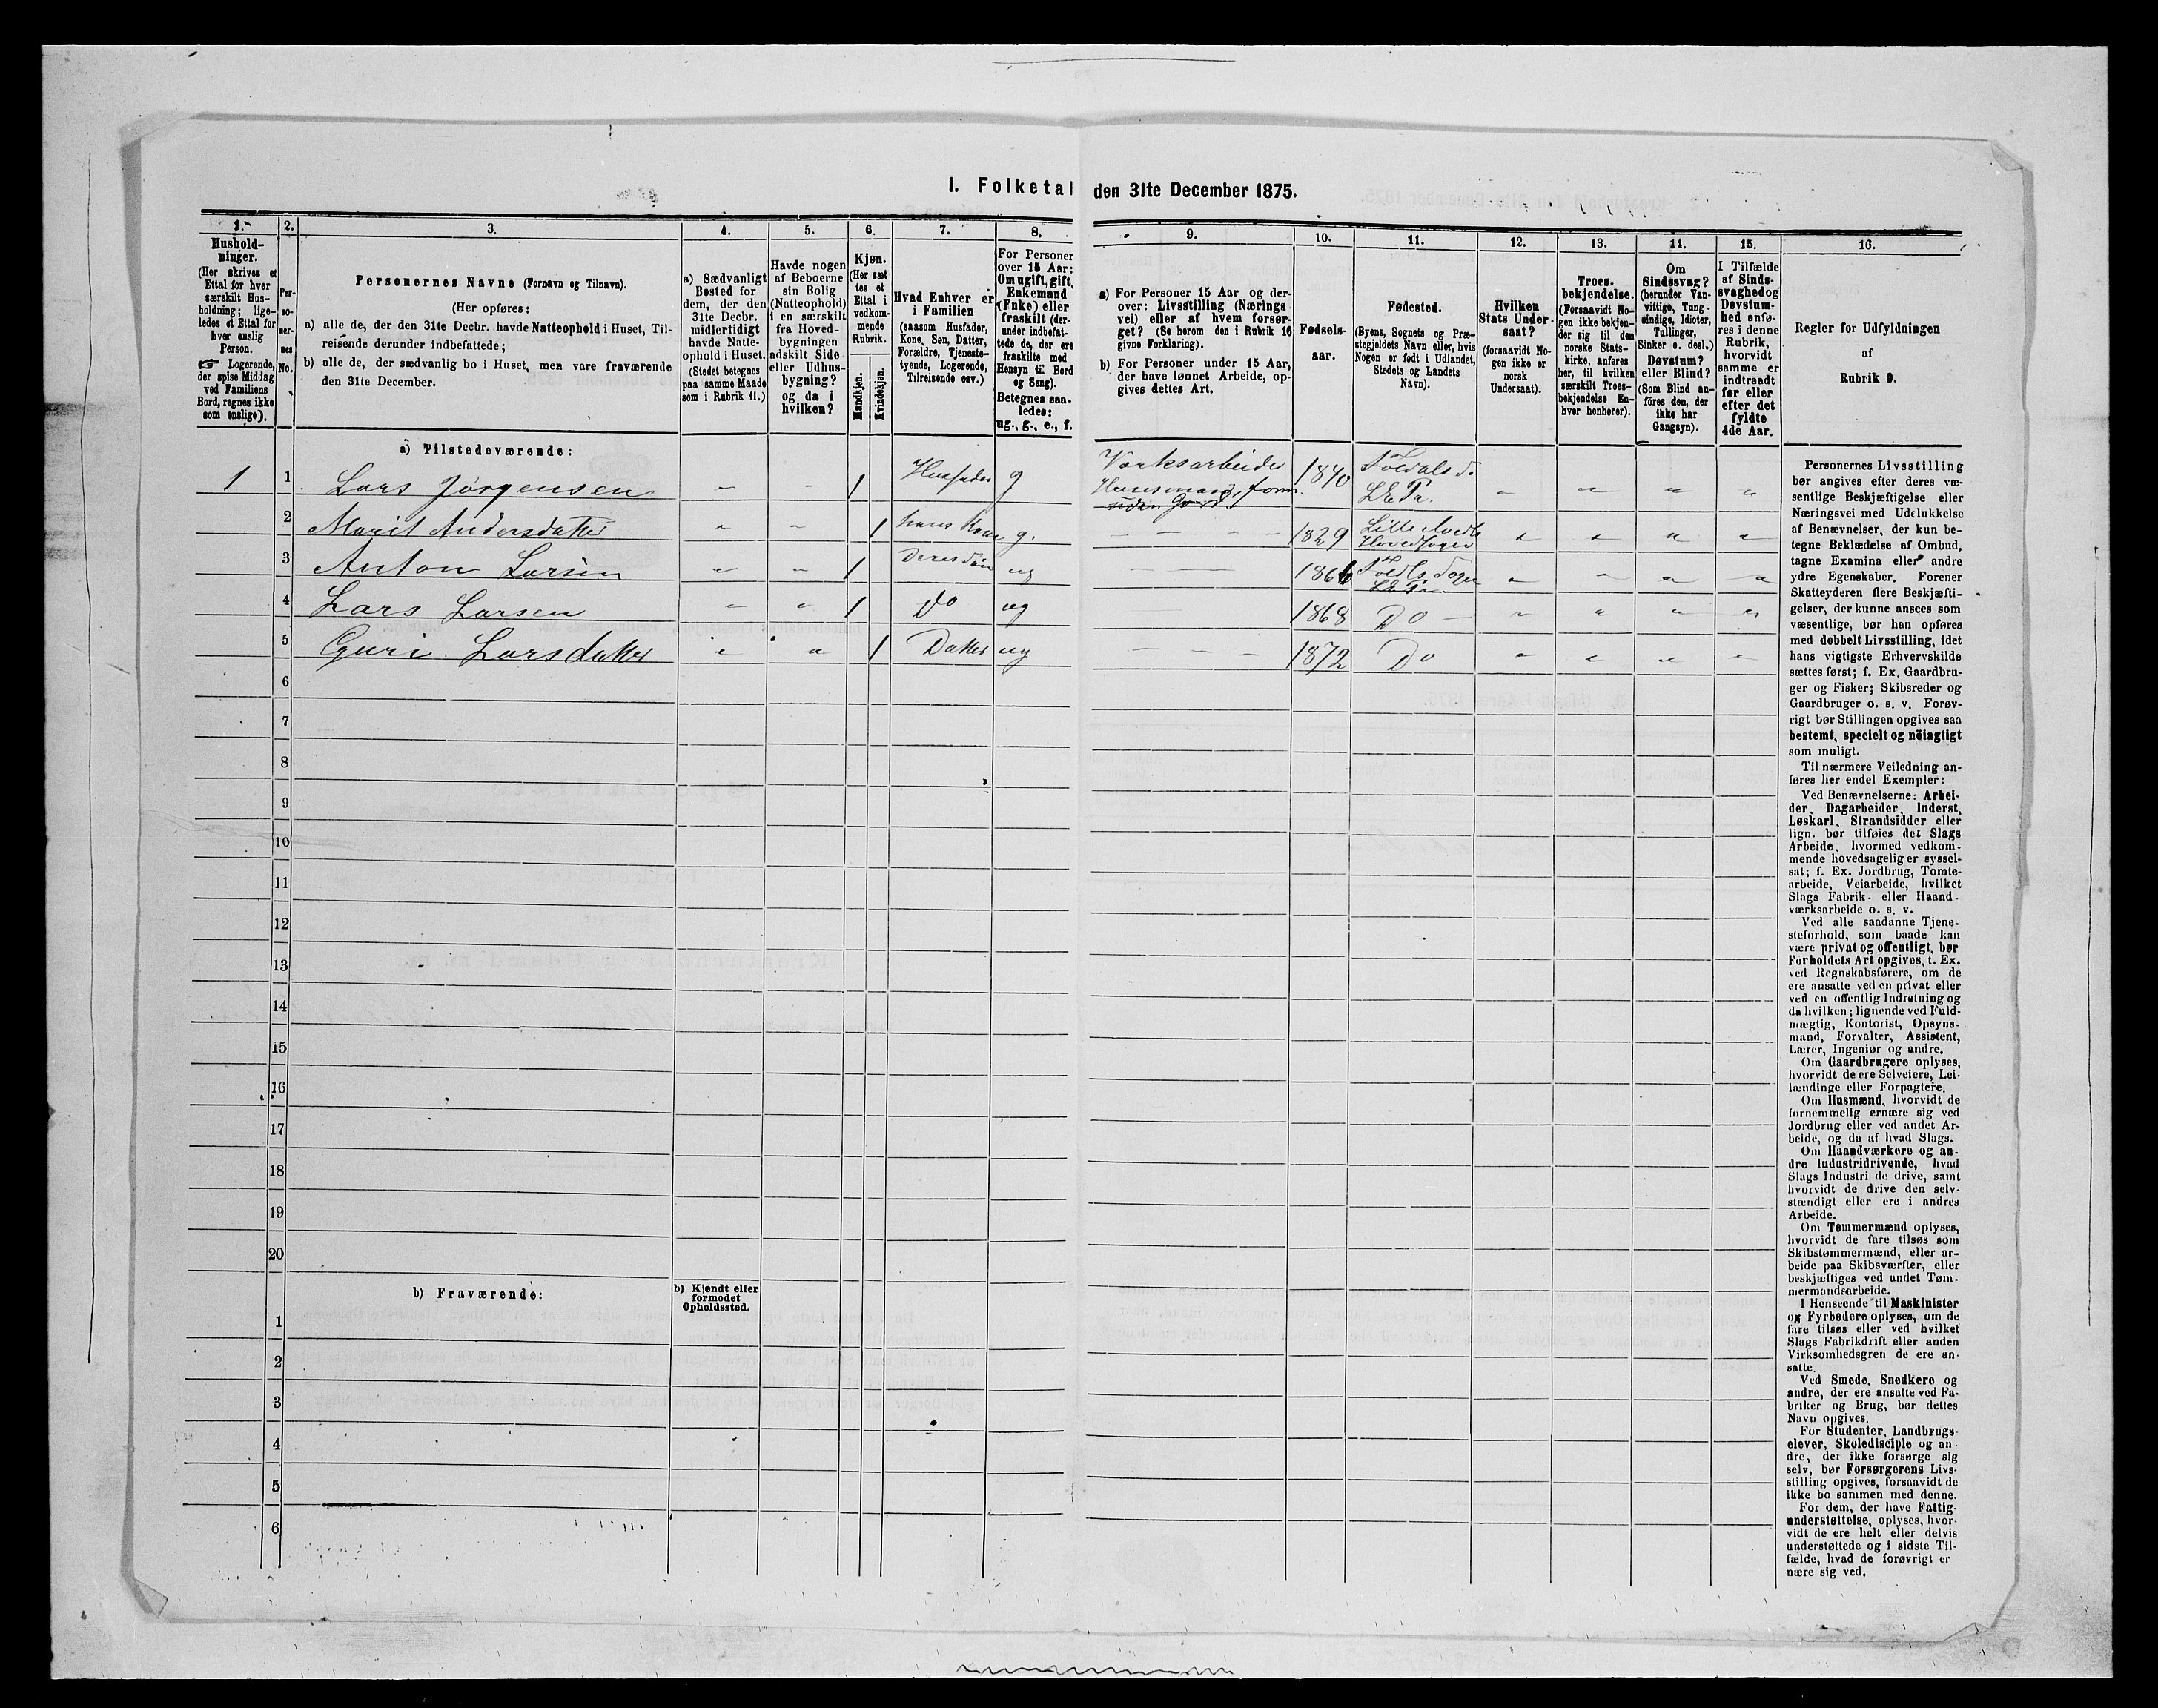 I. Folketal den 31te December 1875.
1.
Hushold-
ninger.
(Her skrives et
Ettal for hver
særskilt Hus-
holdning; lige-
ledes et Ettal for
hver enslig
Person.
☞ Logerende,
der spise Middag
ved Familiens
Bord, regnes ikke
som enslige).
2.
Per-
so-
ner-
nes
No.
3.
Personernes Navne (Fornavn og Tilnavn).
(Her opføres:
a) alle de, der den 31te Decbr. havde Natteophold i Huset, Til-
reisende derunder indbefattede;
b) alle de, der sædvanlig bo i Huset, men vare fraværende
den 31te December.
4.
a) Sædvanligt
Bosted for
dem, der den
31te Decbr.
midlertidigt
havde Natte-
ophold i Huset.
(Stedet betegnes
paa samme Maade
sem i Rubrik 11.)
5.
Havde nogen
af Beboerne
sin Bolig
(Natteophold)
i en særskilt
fra Hoved-
bygningen
adskilt Side
eller Udhus-
bygning?
og da i
hvilken?
6.
Kjøn.
(Her sæt
tes et
Ettal i
vedkom-
mende
Rubrik.
Mandkjøn.
Kvindekjøn.
7.
Hvad Enhver er
i Familien
(saasom Husfader,
Kone, Søn, Datter,
Forældre, Tjeneste-
tyende, Logerende,
Tilreisende osv.)
8.
For Personer
over 15 Aar:
Om ugift, gift,
Enkemand
(Enke) eller
fraskilt (der-
under indbefat-
tede de, der ere
fraskilte med
Hensyn til Bord
og Seng).
Betegnes saa-
ledes:
ug., g., e., f.
9.
a) For Personer 15 Aar og der-
over: Livsstilling (Nærings
vei) eller af hvem forsør-
get? (Se herom den i Rubrik 16
givne Forklaring).
b) For Personer under 15 Aar,
der have lønnet Arbeide, op-
gives dettes Art.
10.
Fødsels-
aar.
11.
Fødested.
(Byens, Sognets og Præ-
stegjeldets Navn eller, hvis
Nogen er født i Udlandet,
Stedets og Landets
Navn).
12.
Hvilken
Stats Under-
saat?
(forsaavidt No-
gen ikke er
norsk
Undersaat).
13.
Troes-
bekjendelse.
(Forsaavidt No-
gen ikke bekjen-
der sig til den
norske Stats-
kirke, anføres
her, til hvilken
særskilt Troes-
bekjendelse En-
hver henhører).
14.
Om
Sindssvag?
(herunder Van-
vittige, Tung-
sindige, Idioter,
Tullinger,
Sinker o. desl.)
Døvstum?
eller Blind?
(Som Blind an-
føres den, der
ikke har
Gangsyn).
15.
I Tilfælde
af Sinds-
svaghed og
Døvstum-
hed anfø-
res i denne
Rubrik,
hvorvidt
samme er
indtraadt
før eller
efter det
fyldte
4de Aar.
16.
Regler for Udfyldningen
af
Rubrik 9.
a) Tilstedeværende:
1 1 Lars Jørgensen 1 Husfader g Værksarbeider 1840 Foldals
Huusmand
2 Marit Andersdatter 1 hans Kone g. 1829 Lille
3 Anton Larsen 1 Deres Søn ug
4 Lars Larsen 1 Do ug 1868 Do
5 Guri Larsdatter 1 Datter ug 1872 Do
6
7
8
9
10
11
12
13
14
15
16
17
18
19
20
b) Fraværende:
b) Kjendt eller
formodet
Opholdssted.
1
2
3
4
5
6
Personernes Livsstilling
bør angives efter deres væ-
sentlige Beskjæftigelse eller
Næringsvei med Udelukkelse
af Benævnelser, der kun be-
tegne Beklædelse af Ombud,
tagne Examina eller andre
ydre Egenskaber. Forener
Skatteyderen flere Beskjæfti-
gelser, der kunne ansees som
væsentlige, bør han opføres
med dobbelt Livsstilling, idet
hans vigtigste Erhvervskilde
sættes først; f. Ex. Gaardbru-
ger og Fisker; Skibsreder og
Gaardbruger o. s. v. Forøv-
rigt bør Stillingen opgives saa
bestemt, specielt og nöiagtigt
som muligt.
Til nærmere Veiledning an-
føres her endel Exempler:
Ved Benævnelserne: Arbei-
der, Dagarbeider, Inderst,
Løskarl, Strandsidder eller
lign. bør tilføies det Slags
Arbeide, hvormed vedkom-
mende hovedsagelig er syssel-
sat; f. Ex. Jordbrug, Tomte-
arbeide, Veiarbeide, hvilket
Slags Fabrik- eller Haand-
værksarbeide o. s. v.
Ved alle saadanne Tjene-
steforhold, som baade kan
være privat og offentligt, bør
Forholdets Art opgives, t. Ex.
ved Regnskabsførere, om de
ere ansatte ved en privat eller
ved en offentlig Indretning og
da hvilken; lignende ved Fuld-
mægtig, Kontorist, Opsyns-
mand, Forvalter, Assistent,
Lærer, Ingeniør og andre.
Om Gaardbrugere oplyses,
hvorvidt de ere Selveiere, Lei-
lændinge eller Forpagtere.
Om Husmænd, hvorvidt de
fornemmelig ernære sig ved
Jordbrug eller ved andet Ar-
beide, og da af hvad Slags.
Om Haandværkere og an-
dre Industridrivende, hvad
Slags Industri de drive, samt
hvorvidt de drive den selv-
stændigt eller ere i andres
Arbeide.
Om Tømmermænd oplyses,
hvorvidt de fare tilsøs som
Skibstømmermænd, eller ar-
beide paa Skibsværfter, eller
beskjæftiges ved andet Tøm-
mermandsarbeide.
I Henseende til Maskinister
og Fyrbødere oplyses, om de
fare tilsøs eller ved hvilket
Slags Fabrikdrift eller anden
Virksomhedsgren de ere an-
satte.
Ved Smede, Snedkere og
andre, der ere ansatte ved Fa-
briker og Brug, bør dettes
Navn opgives.
For Studenter, Landbrugs-
elever, Skoledisciple og an-
dre, der ikke forsørge sig
selv, bør Forsørgerens Livs-
stilling opgives, forsaavidt de
ikke bo sammen med denne.
For dem, der have Fattig-
understøttelse, oplyses, hvor-
vidt de ere helt eller delvis
understøttede og i sidste Til-
fælde, hvad de forøvrigt er
nære sig ved.